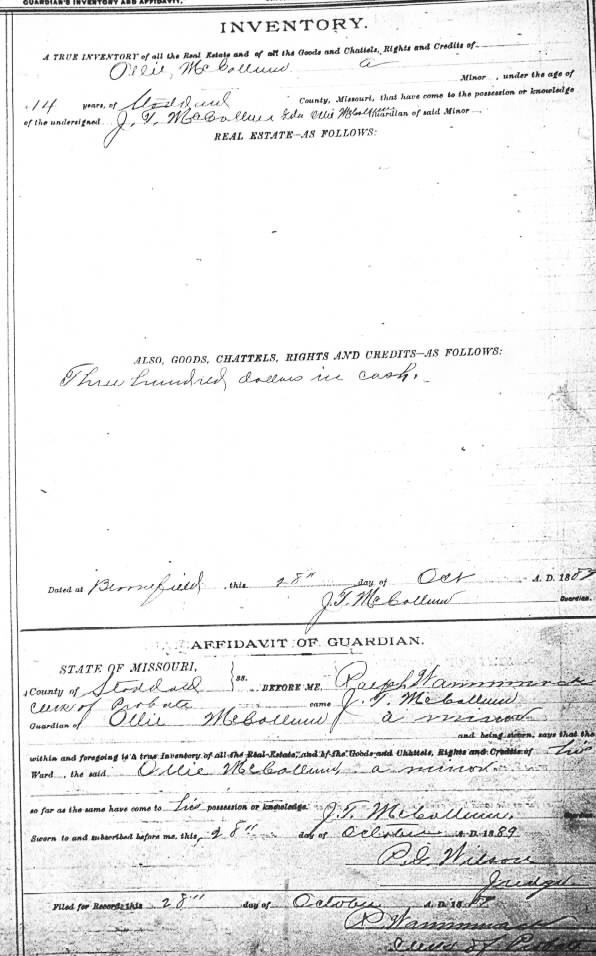 GUARDIAN'S INVENTORY AND AFFIDAVIT.
INVENTORY.
A TRUE INVENTORY of all the Real Estate and of all the Goods and Chattels, Rights and Credits of
Ollie McCollum a Minor , under the age of
14 years, of Stoddard County, Missouri, that have come to the possession or knowledge
of the undersigned J. T. McCollum Ollie McCollum Guardian of said Minor
REAL ESTATE—AS FOLLOWS:
ALSO, GOODS, CHATTELS, RIGHTS AND CREDITS—AS FOLLOWS:
Three hundred dollars in cash.
Dated at Bloomfield , this 28" day of Oct A. D. 188
J. T. McCollum Guardian.
AFFIDAVIT OF GUARDIAN.
STATE OF MISSOURI,
County of Stoddard ss. BEFORE ME, Ralph Wammack
Clerk of Probate came J. T. McCollum
Guardian of Ollie McCollum a minor
and being sworn, says that the
within and foregoing is a true Inventory of all the Real Estate, and of the Goods and Chattels, Rights and Credits of his
Ward , the said Ollie McCollum a minor
so far as the same have come to his possession or knowledge. J. T. McCollum Guardian
Sworn to and subscribed before me, this 28" day of October A. D. 1889
P. G. Wilson
Judge
Filed for Record this 28" day of October A. D. 18
R Wammack
Clerk of Probate